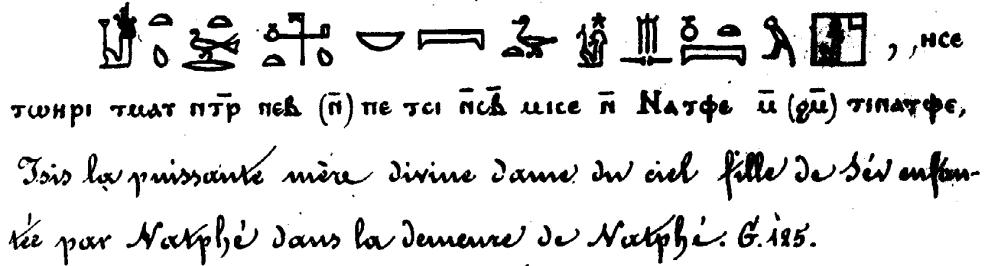 , , ⲏⲥⲉ
ⲧⲱⲏⲣⲓ ⲧⲙⲁⲩ ⲛⲧ̅ⲣ ⲛⲉⲃ (ⲛ̅) ⲡⲉ ⲧⲥⲓ ⲛ̅ⲥⲃ̅ ⲙⲓⲥⲉ ⲛ̅ Ⲛⲁⲧⲫⲉ ⲙ̅ (ϩⲙ̅) ⲧⲓⲛⲁⲧⲫⲉ,
Isis la puissante mère divine dame du ciel fille de Sév enfan-
tée par Natphé dans la demeure de Natphé. G. 125.